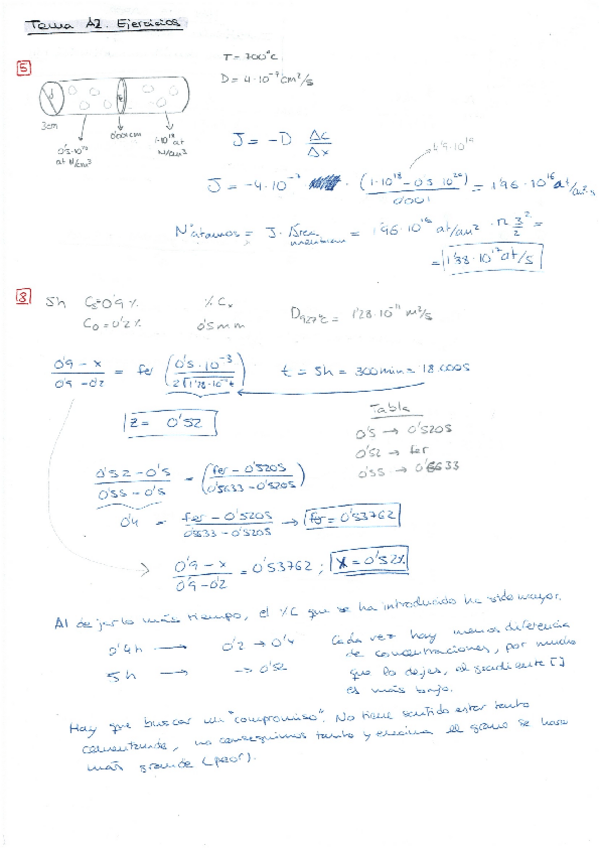 Tema A2. Ejercicios
5
T = 700°C
D = 4·10⁻⁷ cm²/s
3cm
0'001cm
0'5·10²⁰ at N/cm³
1·10¹⁸ at N/cm³
J = -D Δc/Δx
J = -4·10⁻⁷ · (1·10¹⁸ - 0'5·10²⁰)/0'001 = 1'96·10¹⁶ at/cm²·s
-4'9·10¹⁹
NºÁtomos = J · Área membrana = 1'96·10¹⁶ at/cm² · π 3²/2 =
= 1'38·10¹⁷ at/s
8
5h Cs=0'9% % Cx D927°C = 1'28·10⁻¹¹ m²/s
C0 = 0'2% 0'5mm
0'9 - x / 0'9 - 0'2 = fer (0'5·10⁻³ / 2√1'28·10⁻¹¹·t) t = 5h = 300min = 18.000s
z = 0'52
Tabla
0'5 → 0'5205
0'52 → fer
0'55 → 0'5633
0'52 - 0'5 / 0'55 - 0'5 = (fer - 0'5205 / 0'5633 - 0'5205)
0'4 = fer - 0'5205 / 0'5633 - 0'5205 → fer = 0'53762
0'9 - x / 0'9 - 0'2 = 0'53762 ; x = 0'52%
Al dejarlo más tiempo, el %C que se ha introducido ha sido mayor.
0'4h → 0'2 → 0'4
5h → → 0'52
Cada vez hay menos diferencia
de concentraciones, por mucho
que lo dejes, el gradiente []
es más bajo.
Hay que buscar un "compromiso". No tiene sentido estar tanto
cementando, no conseguimos tanto y encima el grano se hace
más grande (peor).